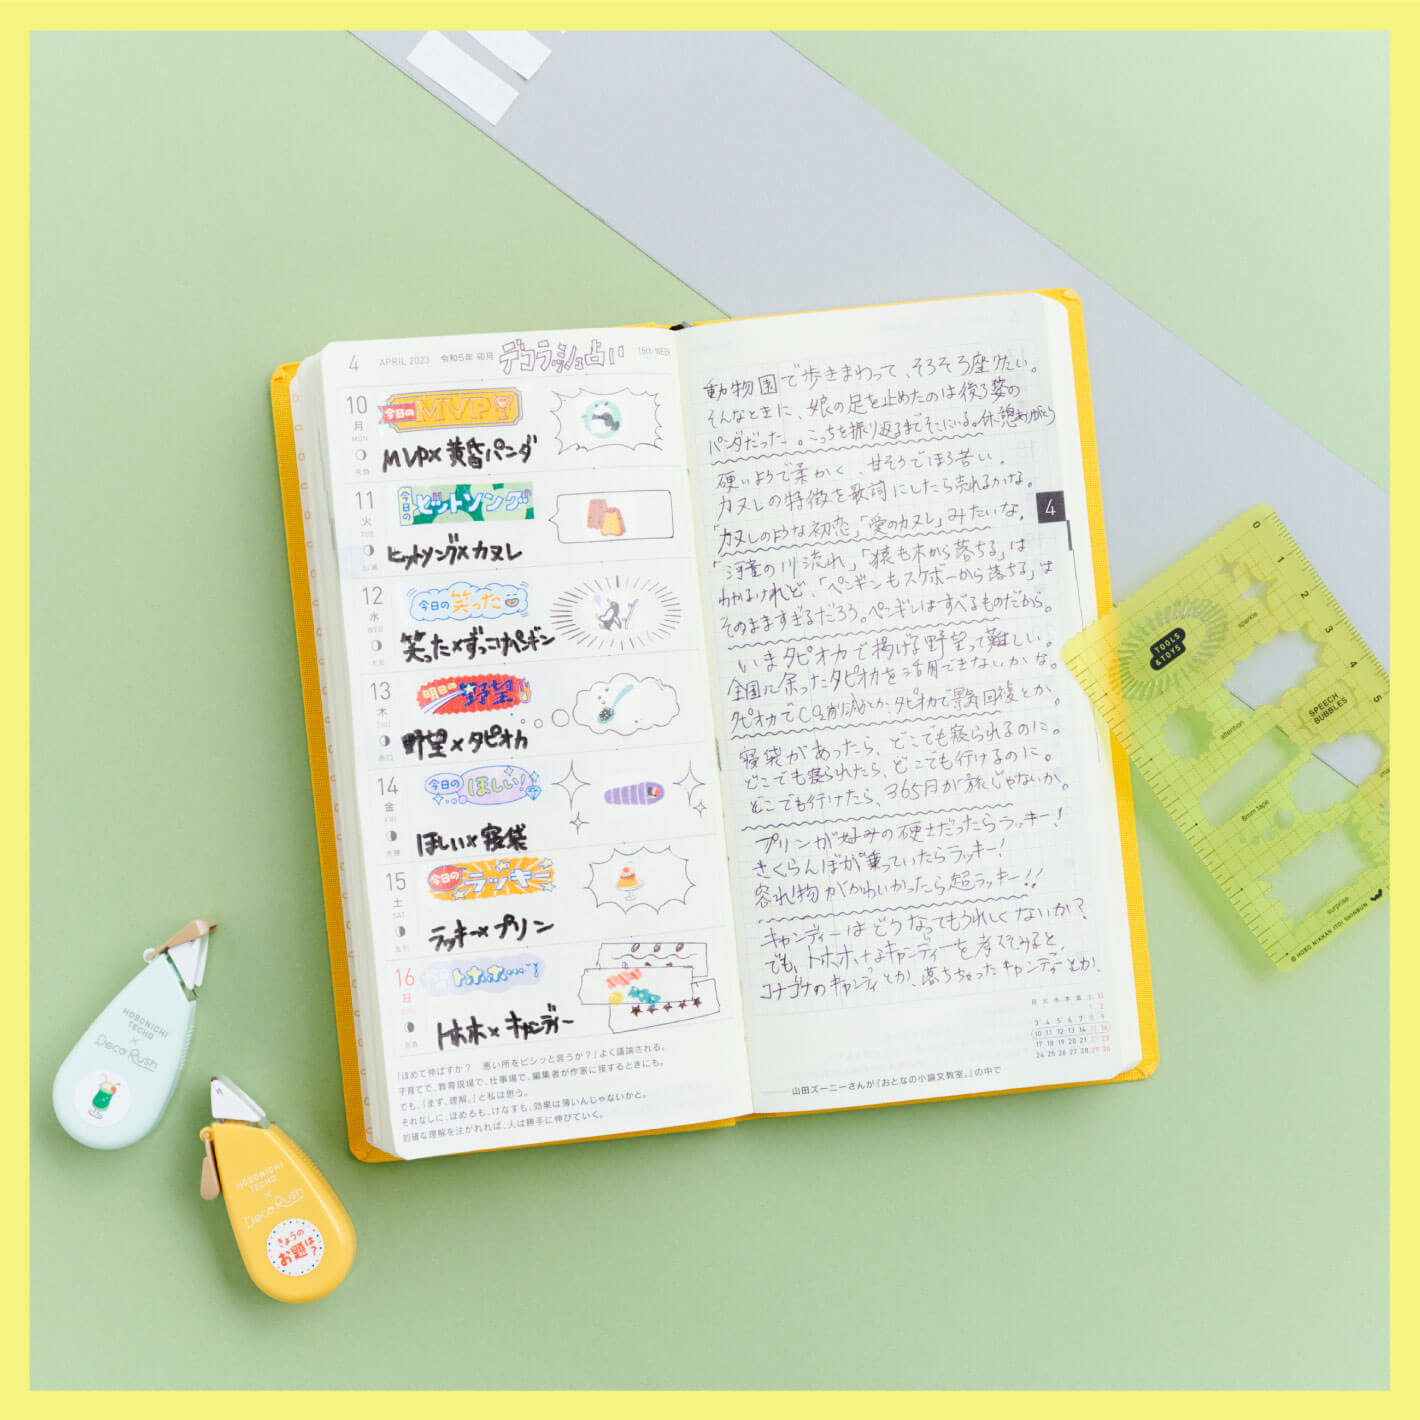 4 APRIL 2023 令和5年 卯月 デコラッシュ占い 15th WEEK
10 月 MON 先勝
今日の MVP
MVP×黄昏パンダ
11 火 TUE 仏滅
今日の ヒットソング
ヒットソング×カヌレ
12 水 WED 大安
今日の 笑った
笑った×ずっこけペンギン
13 木 THU 赤口
明日の 野望
野望×タピオカ
14 金 FRI 先勝
今日の ほしい!
ほしい×寝袋
15 土 SAT 友引
今日の ラッキー
ラッキー×プリン
16 日 SUN 先負
トホホ…
トホホ×キャンディー
「ほめて伸ばすか? 悪い所をビシッと言うか?」よく議論される。
子育てで、教育現場で、仕事場で、編集者が作家に接するときにも。
でも、「まず、理解。」と私は思う。
それなしに、ほめるも、けなすも、効果は薄いんじゃないかと。
的確な理解を注がれれば、人は勝手に伸びていく。
動物園で歩きまわって、そろそろ座りたい。
そんなときに、娘の足を止めたのは後ろ姿の
パンダだった。こっちを振り返るまでそこにいる。休憩ありがとう
硬いようで柔かく、甘そうでほろ苦い。
カヌレの特徴を歌詞にしたら売れるかな。
「カヌレのような初恋」「愛のカヌレ」みたいな。
「河童の川流れ」「猿も木から落ちる」は
わかるけれど、「ペンギンもスケボーから落ちる」は
そのまますぎるだろう。ペンギンはすべるものだから。
いまタピオカで掲げる野望って難しい。
全国に余ったタピオカを活用できないかな。
タピオカでCO2削減とか、タピオカで景気回復とか。
寝袋があったら、どこでも寝られるのに。
どこでも寝られたら、どこでも行けるのに。
どこでも行けたら、365日が旅じゃないか。
プリンが好みの硬さだったらラッキー!
さくらんぼが乗っていたらラッキー!
容れ物がかわいかったら超ラッキー!!
キャンディーはどうなってもうれしくないか?
でも、トホホなキャンディーを考えてみると、
コナゴナのキャンディとか、落ちちゃったキャンディーとか。
4
月 火 水 木 金 土 日
1 2
3 4 5 6 7 8 9
10 11 12 13 14 15 16
17 18 19 20 21 22 23
24 25 26 27 28 29 30
——山田ズーニーさんが『おとなの小論文教室。』の中で
HOBONICHI
TECHO
×
Deco Rush
HOBONICHI
TECHO
×
Deco Rush
きょうの
お題は?
0 1 2 3 4 5
TOOLS
& TOYS
sparkle
SPEECH
BUBBLES
attention
8mm tape
surprise
© HOBO NIKKAN ITOI SHINBUN